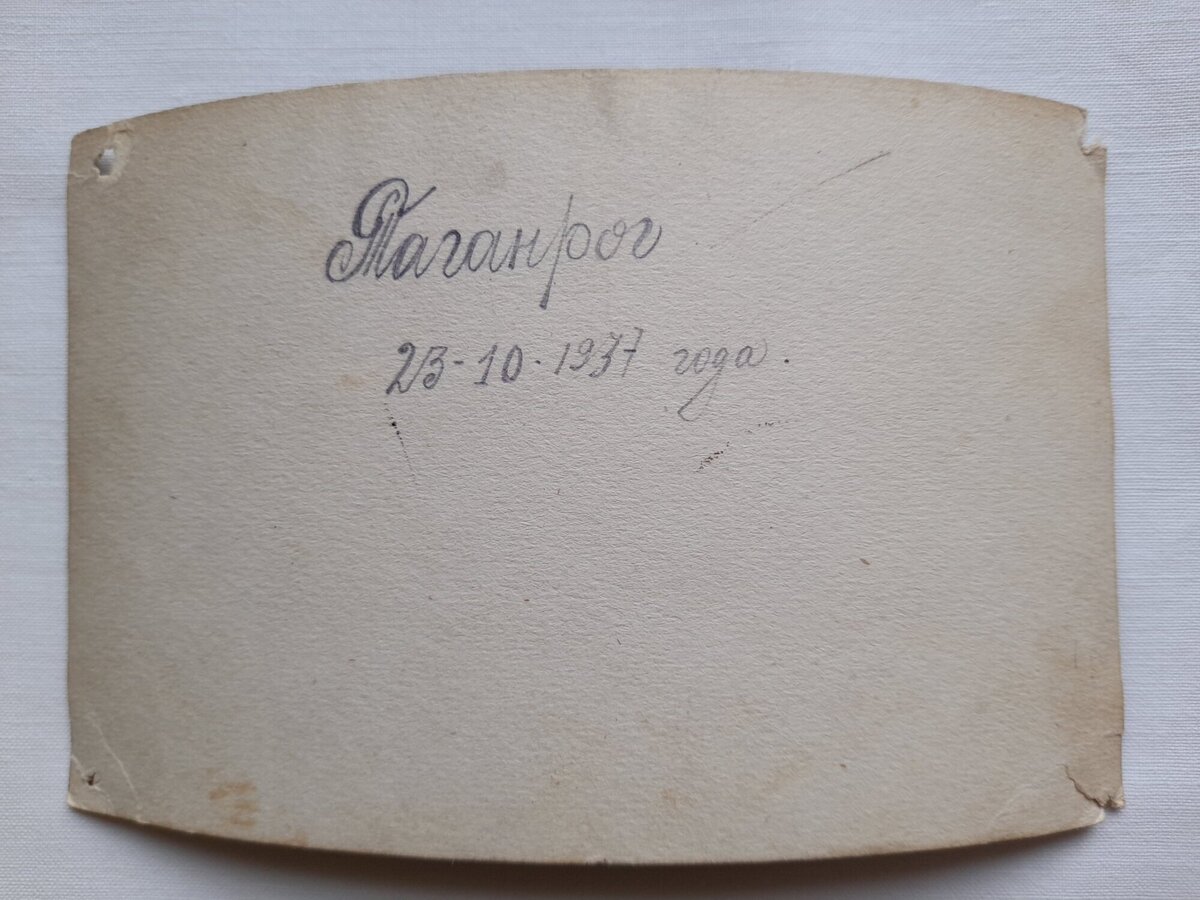 Таганрог
23-10-1937 года.